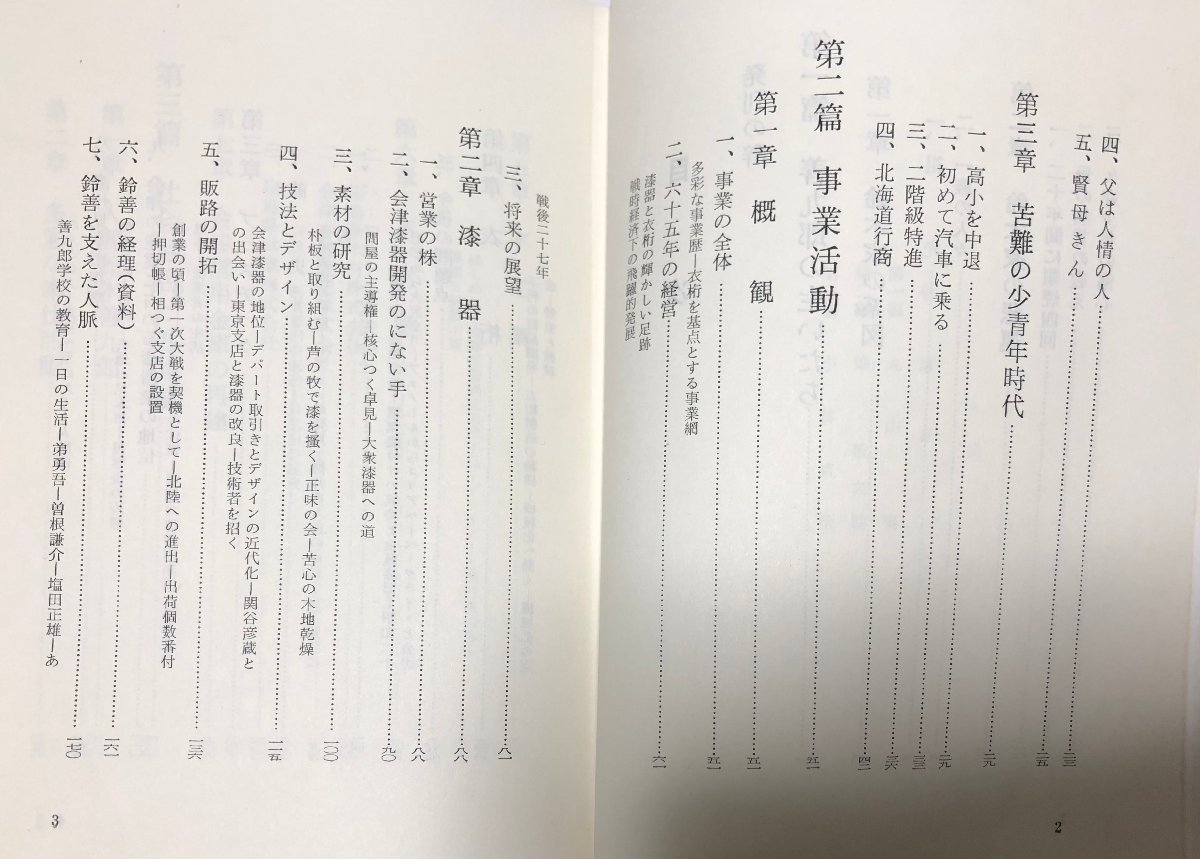 四、父は人情の人……二三
五、賢母きん……二五
第三章　苦難の少青年時代……二九
一、高小を中退……二九
二、初めて汽車に乗る……三三
三、二階級特進……三六
四、北海道行商……四二
第二篇　事業活動……五一
第一章　概　観……五一
一、事業の全体……五一
多彩な事業歴―衣桁を基点とする事業綱
二、六十五年の経営……六一
漆器と衣桁の輝かしい足跡
戦時経済下の飛躍的発展
2
戦後二十七年
三、将来の展望……八一
第二章　漆　器……八八
一、営業の株……八八
二、会津漆器開発のにない手……九〇
問屋の主導権―核心つく卓見―大衆漆器への道
三、素材の研究……一〇〇
朴板と取り組む―芦の牧で漆を搔く―正味の会―苦心の木地乾燥
四、技法とデザイン……一一五
会津漆器の地位―デパート取引きとデザインの近代化―関谷彦蔵と
の出会い―東京支店と漆器の改良―技術者を招く
五、販路の開拓……一三六
創業の頃―第一次大戦を契機として―北陸への進出―出荷個数番付
―押切帳―相つぐ支店の設置
六、鈴善の経理（資料）……一六一
七、鈴善を支えた人脈……一七〇
善九郎学校の教育―一日の生活―弟勇吾―曽根謙介―塩田正雄―あ
3